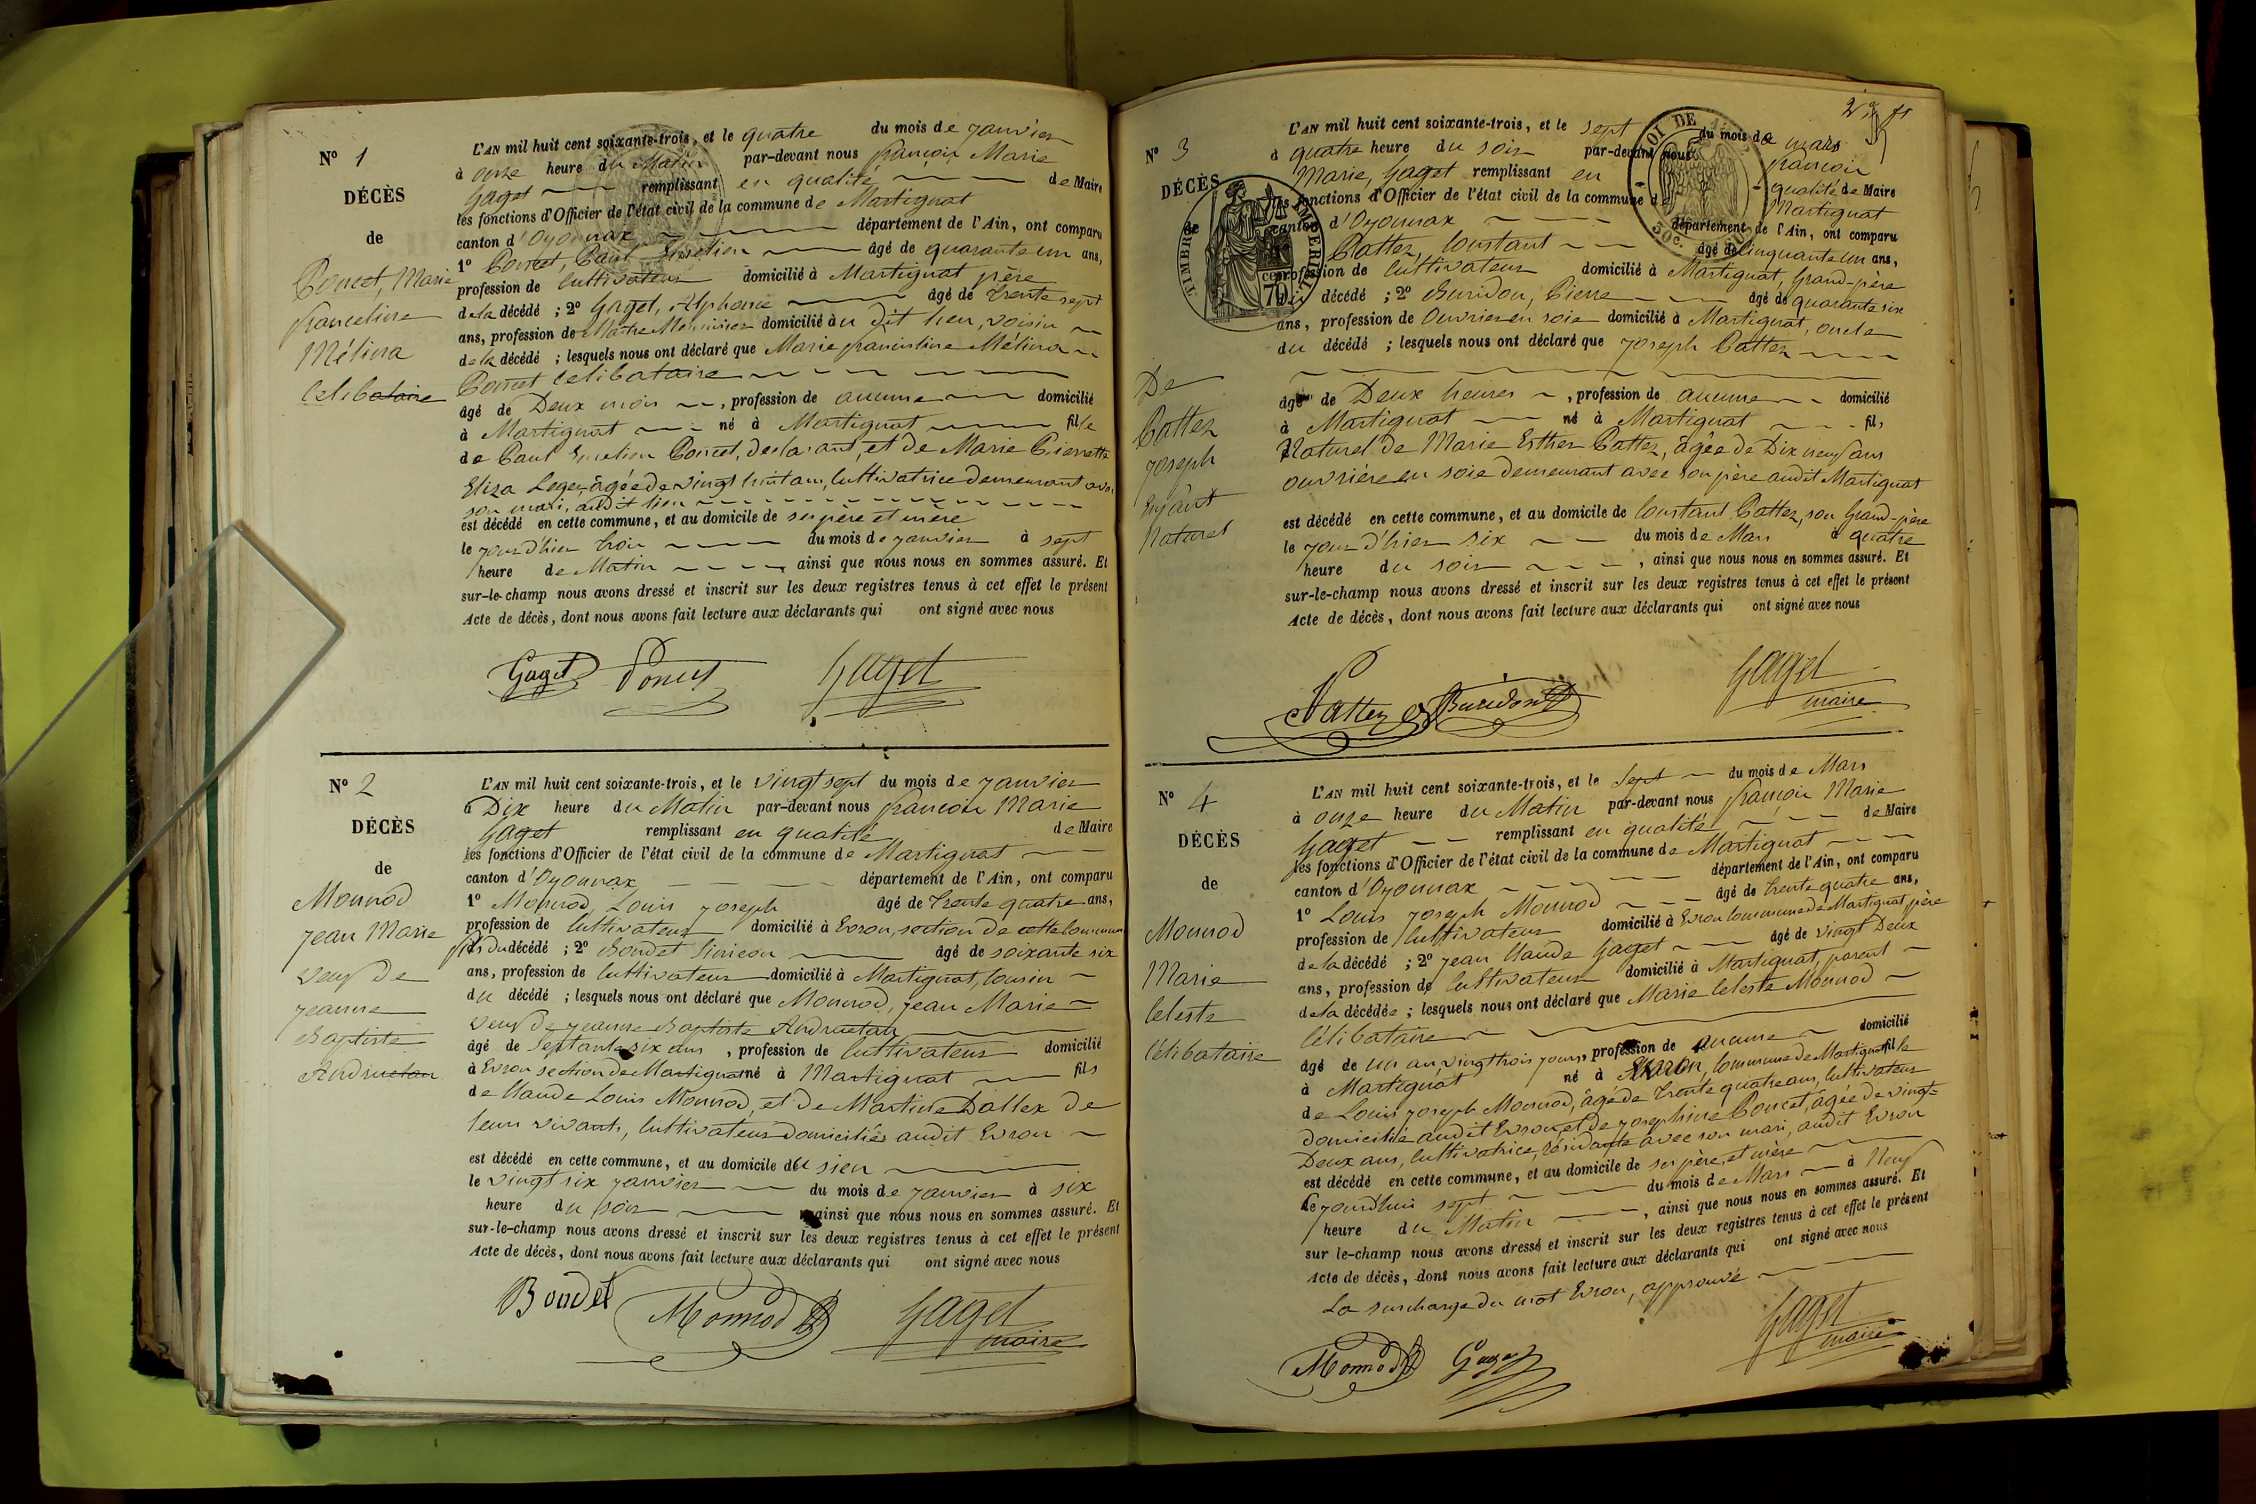 N° 1
DÉCÈS
de
Poncet, Marie
franceline
Mélina
Celibataire
L'AN mil huit cent soixante-trois, et le quatre du mois de janvier
à onze heure du Matin par-devant nous françois Marie
Gaget remplissant en qualité de Maire
les fonctions d'Officier de l'état civil de la commune de Martignat
canton d'Oyonnax département de l'Ain, ont comparu
1° Poncet, Paul Emelien âgé de quarante un ans,
profession de Cultivateur domicilié à Martignat père
de la décédé ; 2° Gaget, Alphonse âgé de trente sept
ans, profession de Maître Menuisier domicilié àu dit lieu, voisin
de la décédé ; lesquels nous ont déclaré que Marie franceline Mélina
Poncet Celibataire
âgé de Deux mois , profession de aucune domicilié
à Martignat né à Martignat fille
de Paul Emelien Poncet, déclarant, et de Marie Pierrette
Eliza Leger, âgée de vingt huit ans, Cultivatrice demeurant avec
son mari, audit lieu
est décédé en cette commune, et au domicile de ses père et mère
le jour d'hier trois du mois de janvier à sept
heure de Matin ainsi que nous nous en sommes assuré. Et
sur-le-champ nous avons dressé et inscrit sur les deux registres tenus à cet effet le présent
Acte de décès, dont nous avons fait lecture aux déclarants qui ont signé avec nous
Gaget Poncet Gaget
N° 2
DÉCÈS
de
Monnod
Jean Marie
veuf de
Jeanne
Baptiste
Andruetan
L'AN mil huit cent soixante-trois, et le vingt sept du mois de janvier
à Dix heure du Matin par-devant nous françois Marie
Gaget remplissant en qualité de Maire
les fonctions d'Officier de l'état civil de la commune de Martignat
canton d'Oyonnax département de l'Ain, ont comparu
1° Monnod, Louis joseph âgé de trente quatre ans,
profession de Cultivateur domicilié à Evron, section de cette commune
fils du décédé ; 2° Boudet Simeon âgé de soixante six
ans, profession de Cultivateur domicilié à Martignat, Cousin
du décédé ; lesquels nous ont déclaré que Monnod, Jean Marie
veuf de jeanne Baptiste Andruetan
âgé de septante six ans , profession de Cultivateur domicilié
à Evron section de Martignat né à Martignat fils
de Claude Louis Monnod, et de Martine Dallex de
leurs vivants, Cultivateurs domiciliés audit Evron
est décédé en cette commune, et au domicile du sien
le vingt six janvier du mois de janvier à six
heure du soir ainsi que nous nous en sommes assuré. Et
sur-le-champ nous avons dressé et inscrit sur les deux registres tenus à cet effet le présent
Acte de décès, dont nous avons fait lecture aux déclarants qui ont signé avec nous
Boudet Monnod Gaget
maire
TIMBRE IMPÉRIAL
70
LOI DE
50c.
N° 3
DÉCÈS
de
De
Pattez
joseph
Enfant
Naturel
L'AN mil huit cent soixante-trois, et le sept du mois de mars
à quatre heure du soir par-devant nous françois
Marie, Gaget remplissant en qualité de Maire
les fonctions d'Officier de l'état civil de la commune de Martignat
canton d'Oyonnax département de l'Ain, ont comparu
Pattez, Constant âgé de Cinquante un ans,
profession de Cultivateur domicilié à Martignat, Grand-père
décédé ; 2° Buridon, Pierre âgé de quarante six
ans, profession de Ouvrier en soie domicilié à Martignat, oncle
du décédé ; lesquels nous ont déclaré que Joseph Pattez
âgé de Deux heures , profession de aucune domicilié
à Martignat né à Martignat fils
Naturel de Marie Esther Pattez, âgée de Dix neuf ans
ouvrière en soie demeurant avec son père audit Martignat
est décédé en cette commune, et au domicile de Constant Pattez, son Grand-père
le jour d'hier six du mois de Mars à quatre
heure du soir , ainsi que nous nous en sommes assuré. Et
sur-le-champ nous avons dressé et inscrit sur les deux registres tenus à cet effet le présent
Acte de décès, dont nous avons fait lecture aux déclarants qui ont signé avec nous
Pattez Buridon Gaget
maire
N° 4
DÉCÈS
de
Monnod
Marie
Celeste
Célibataire
L'AN mil huit cent soixante-trois, et le sept du mois de Mars
à onze heure du Matin par-devant nous françois Marie
Gaget remplissant en qualité de Maire
les fonctions d'Officier de l'état civil de la commune de Martignat
canton d'Oyonnax département de l'Ain, ont comparu
1° Louis Joseph Monnod âgé de trente quatre ans,
profession de Cultivateur domicilié à Evron Commune de Martignat père
de la décédé ; 2° Jean Claude Gaget âgé de vingt Deux
ans, profession de Cultivateur domicilié à Martignat, parent
de la décédée ; lesquels nous ont déclaré que Marie Celeste Monnod
Célibataire
âgé de un an, vingt trois jours, profession de aucune domicilié
à Martignat né à Evron, Commune de Martignat fille
de Louis Joseph Monnod, âgé de trente quatre ans, Cultivateur
domicilié audit Evron et de Josephine Poncet, agée de vingt-
Deux ans, Cultivatrice, résidante avec son mari, audit Evron
est décédé en cette commune, et au domicile de ses père et mère
Ce jourd'hui sept du mois de Mars à Neuf
heure du Matin , ainsi que nous nous en sommes assuré. Et
sur le-champ nous avons dressé et inscrit sur les deux registres tenus à cet effet le présent
Acte de décès, dont nous avons fait lecture aux déclarants qui ont signé avec nous
La surcharge du mot Evron, approuvé
Monnod Gaget Gaget
maire